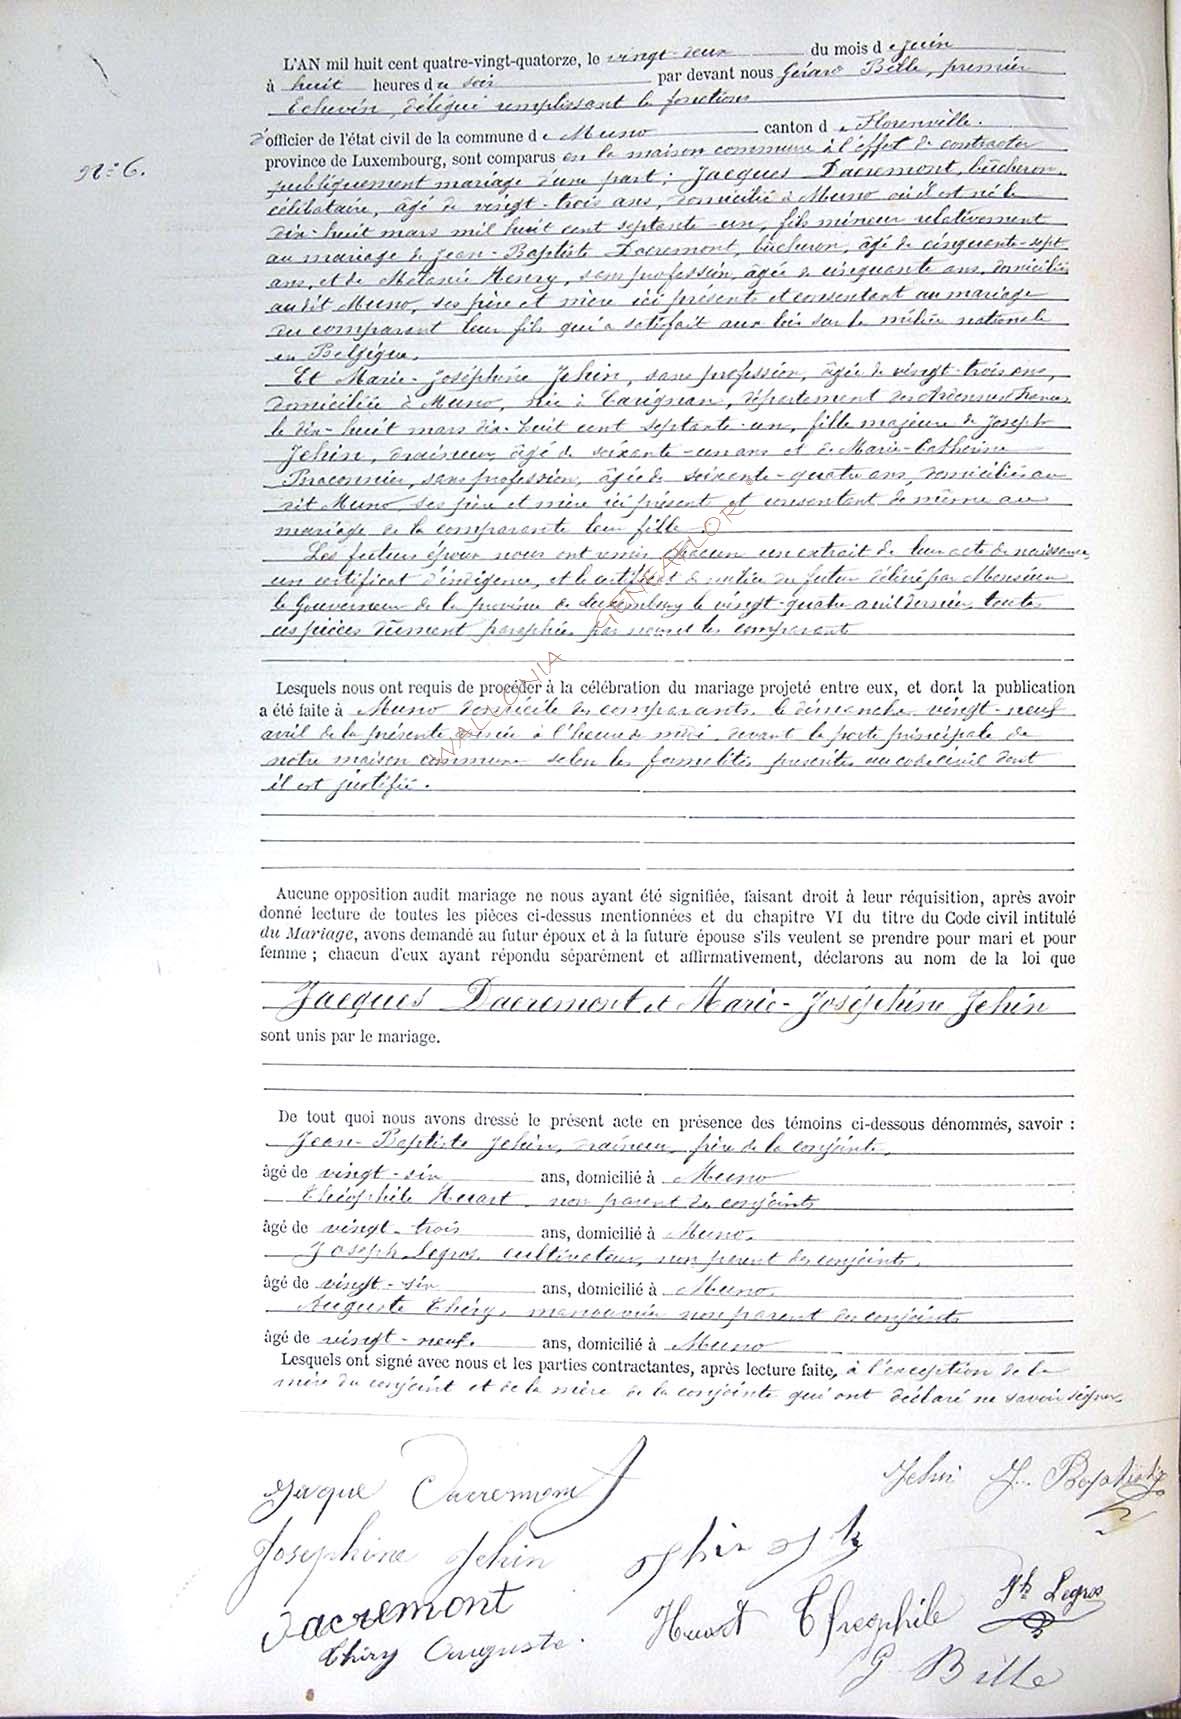 L'AN mil huit cent quatre-vingt-quatorze, le vingt-deux du mois de Juin
à huit heures du soir par devant nous Gérard Bille, premier
Echevin, délégué remplissant les fonctions
d'officier de l'état civil de la commune de Muno canton de Florenville.
N° 6.
province de Luxembourg, sont comparus en la maison commune à l'effet de contracter
publiquement mariage d'une part; Jacques Dacremont, bûcheron,
célibataire, âgé de vingt-trois ans, domicilié à Muno où il est né le
dix-huit mars mil huit cent septante-un, fils mineur relativement
au mariage de Jean-Baptiste Dacremont, bûcheron, âgé de cinquante-sept
ans, et de Mélanie Henry, sans profession, âgée de cinquante ans, domiciliés
audit Muno, ses père et mère ici présents et consentant au mariage
du comparant leur fils qui a satisfait aux lois sur la milice nationale
en Belgique.
Et Marie-Joséphine Jehin, sans profession, âgée de vingt-trois ans,
domiciliée à Muno, née à Carignan, département des Ardennes France
le dix-huit mars dix-huit cent septante-un, fille majeure de Joseph
Jehin, draineur, âgé de soixante-un ans et de Marie-Catherine
Braconnier, sans profession, âgée de soixante-quatre ans, domiciliés au
dit Muno, ses père et mère ici présent et consentant de même au
mariage de la comparante leur fille.
Les futurs époux nous ont remis chacun un extrait de leur acte de naissance,
un certificat d'indigence, et le certificat de milice du futur délivré par Monsieur
le Gouverneur de la province de Luxembourg le vingt-quatre avril dernier, toutes
ces pièces dûment paraphées par nous et les comparants
Lesquels nous ont requis de procéder à la célébration du mariage projeté entre eux, et dont la publication
a été faite à Muno domicile des comparants, le dimanche vingt-neuf
avril de la présente année à l'heure de midi, devant la porte principale de
notre maison commune selon les formalités au code civil dont
il est justifié.
Aucune opposition audit mariage ne nous ayant été signifiée, faisant droit à leur réquisition, après avoir
donné lecture de toutes les pièces ci-dessus mentionnées et du chapitre VI du titre du Code civil intitulé
du Mariage, avons demandé au futur époux et à la future épouse s'ils veulent se prendre pour mari et pour
femme ; chacun d'eux ayant répondu séparément et affirmativement, déclarons au nom de la loi que
Jacques Dacremont et Marie-Joséphine Jehin
sont unis par le mariage.
De tout quoi nous avons dressé le présent acte en présence des témoins ci-dessous dénommés, savoir :
Jean-Baptiste Jehin, draineur, frère de la conjointe,
âgé de vingt-six ans, domicilié à Muno
Théophile Huart, non parent des conjoints
âgé de vingt-trois ans, domicilié à Muno.
Joseph Legros, cultivateur, non parent des conjoints,
âgé de vingt-six ans, domicilié à Muno.
Auguste Thiry, manouvrier non parent des conjoints
âgé de vingt-neuf. ans, domicilié à Muno
Lesquels ont signé avec nous et les parties contractantes, après lecture faite, à l'exception de la
mère du conjoint et de la mère de la conjointe qui ont déclaré ne savoir signer.
Jaque Dacremont Jehin J. Baptiste
Joséphine Jehin Jehin
Dacremont Huart Théophile Jh Legros
Thiry Auguste. G Bille
WALLONIA GENEAFLOR